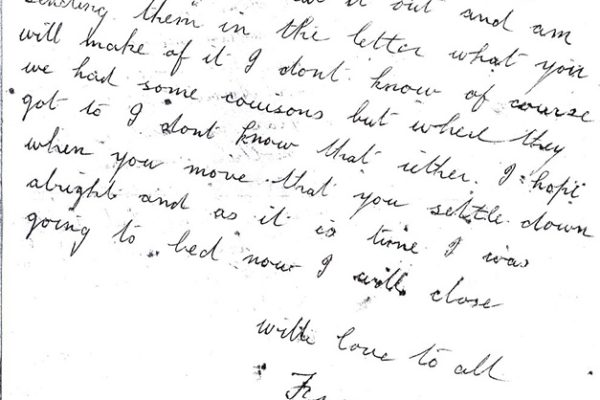 it out and am
sending them in the letter what you
will make of it I dont know of course
we had some couisons but where they
got to I dont know that iether. I hope
when you move that you settle down
alright and as it is time I was
going to bed now I will close
with love to all